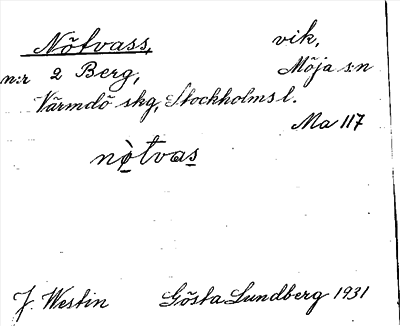 Nötvass, vik,
n:r 2 Berg, Möja s:n
Värmdö skg, Stockholms l.
Ma 117
nò̱tvas̱
J. Westin Gösta Lundberg 1931